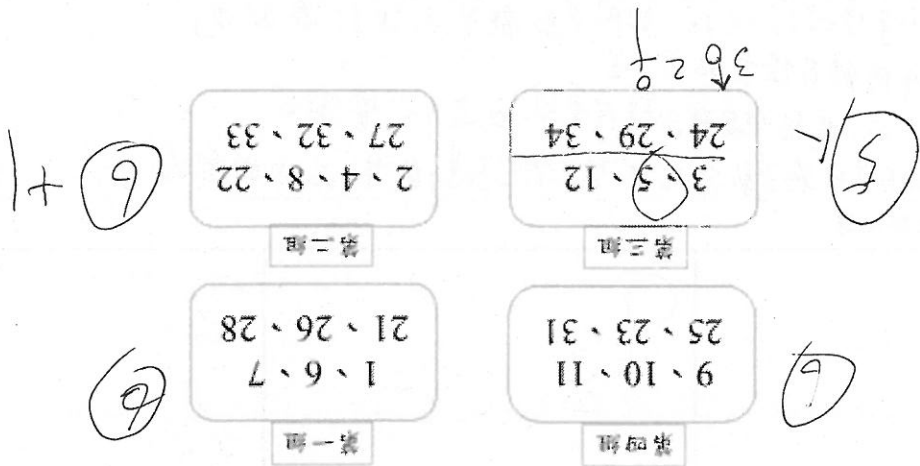 第四組
9、10、11
25、23、31
6
第一組
1、6、7
21、26、28
6
第三組
3、5、12
24、29、34
5
第二組
2、4、8、22
27、32、33
6